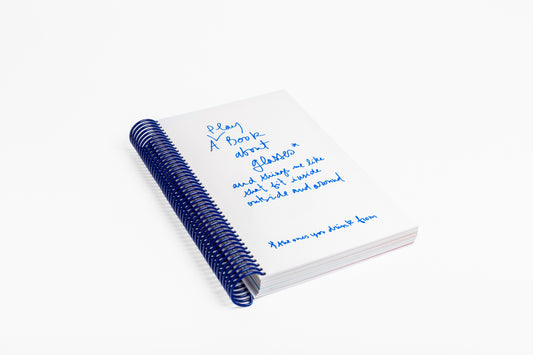 Play
A Book
about
glasses*
and things we like
that fit inside
outside and around
* the ones you drink from